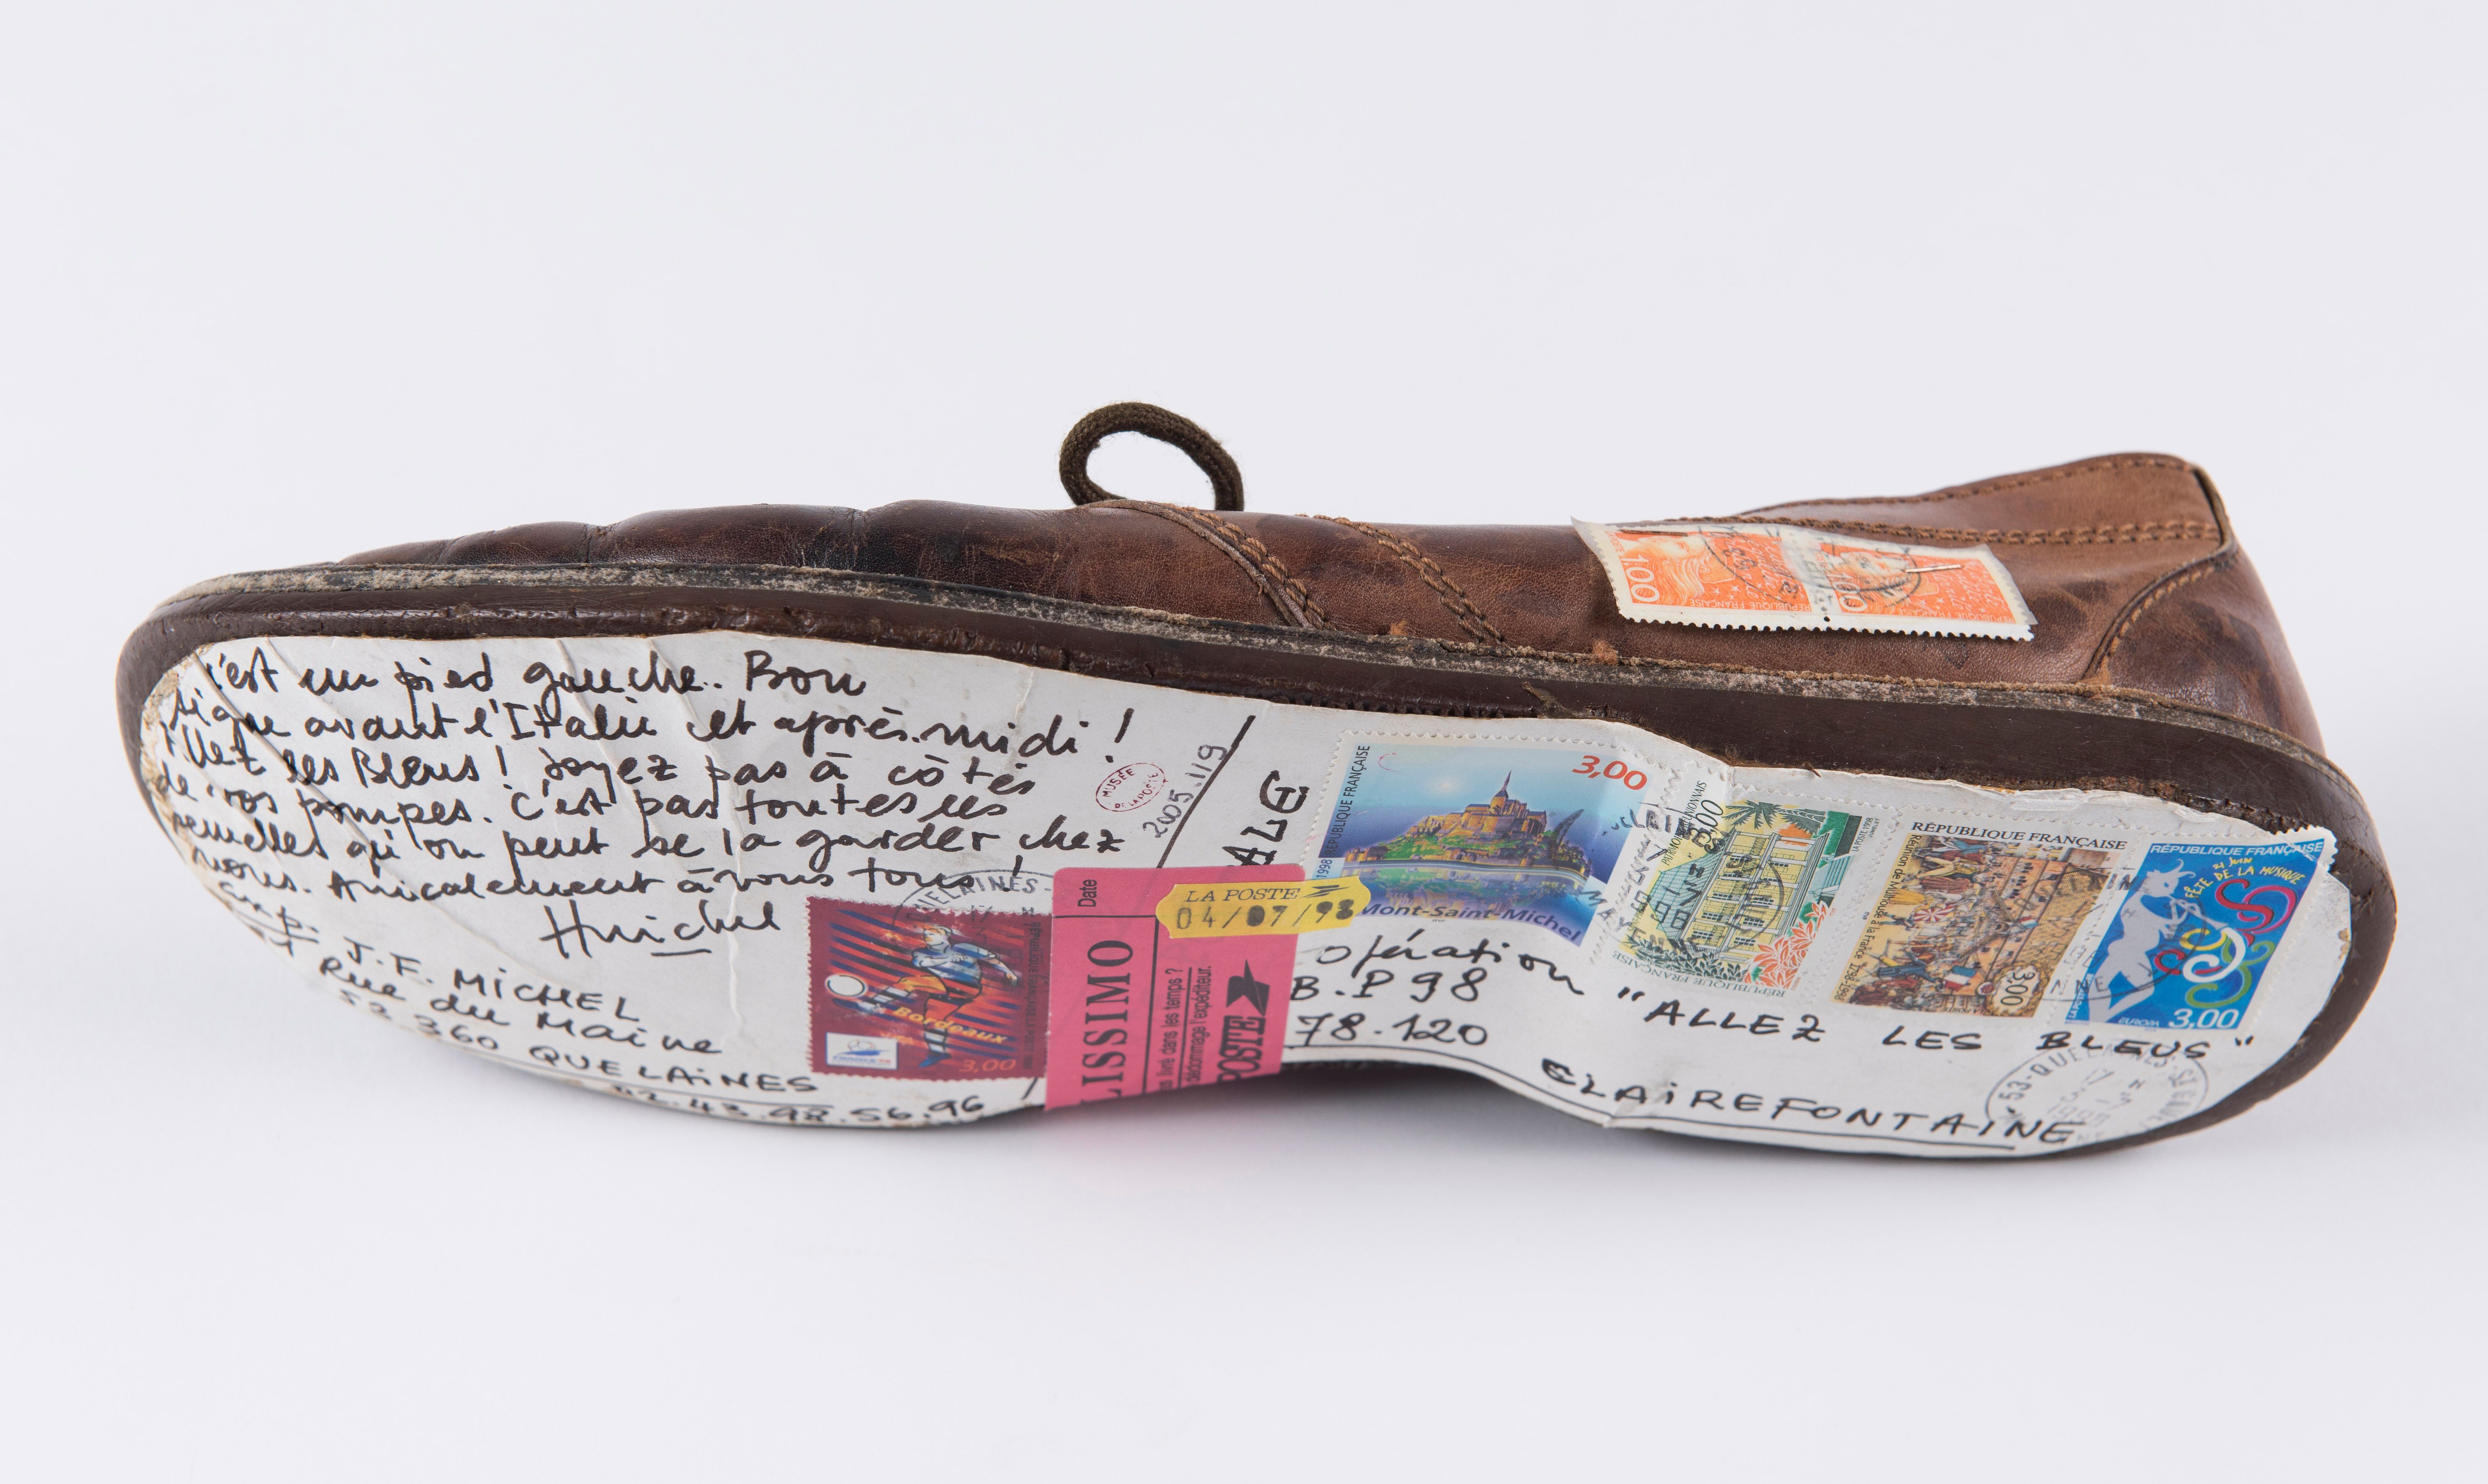 c'est un pied gauche.. Bon
signe avant l'Italie cet après.midi !
Allez les Bleus ! Soyez pas à côtés
de vos pompes. C'est pas toutes les
semelles qu'on peut se la garder chez
vous. Amicalement à vous tous !
Exp. J.F. MiCHEL
Rue du Maine
53.360 QUELAiNES
02.43.98.56.96
MUSÉE
DE LA POSTE
2005.119
Bordeaux
FRANCE 98
3,00
Date
LISSIMO
livré dans les temps ?
dédommage l'expéditeur.
POSTE
LA POSTE
04/07/98
ALE
RÉPUBLIQUE FRANÇAISE
3,00
1998
Mont-Saint-Michel
3,00
RÉPUBLIQUE FRANÇAISE
LA POSTE 1998
RÉPUBLIQUE FRANÇAISE
Réunion de Mulhouse à la France 1798-1998
3,00
RÉPUBLIQUE FRANÇAISE
21 JUIN
FÊTE DE LA MUSIQUE
EUROPA
3,00
opération
"ALLEZ LES BLEUS"
B.P 98
78.120
CLAiREFONTAINE
53-QUELAINES
1,00
RÉPUBLIQUE FRANÇAISE